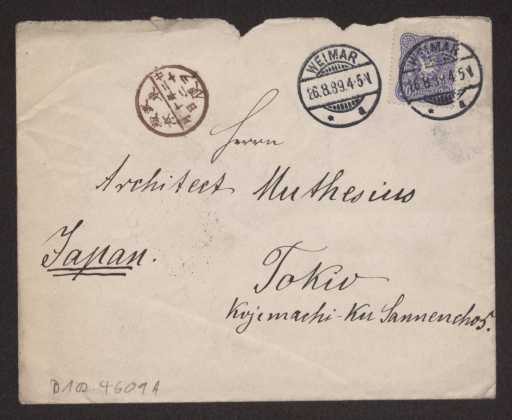 WEIMAR
26.8.89.4-5N
WEIMAR
26.8.89.4-5N
Herrn
Architect Muthesius
Japan.
Tokio
Kojemachi-Ku Sannencho 5.
D102-4609A